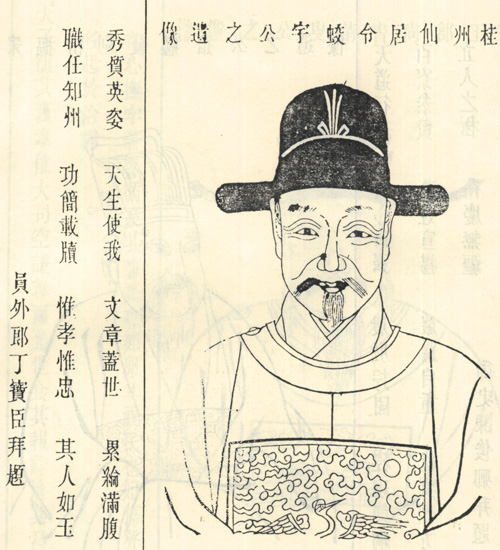 桂州仙居令蛟宇公之遺像
秀質英姿 天生使我 文章蓋世 累綸滿腹
職任知州 功簡載牘 惟孝惟忠 其人如玉
員外郎丁寶臣拜題